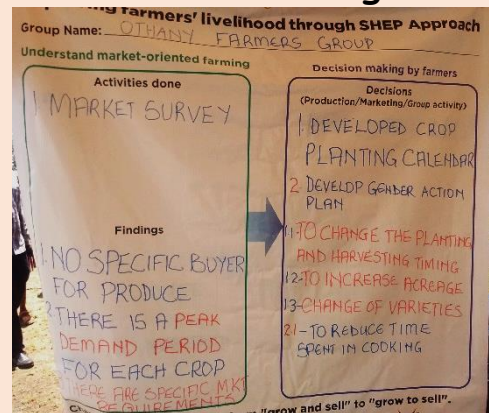 farmers' livelihood through SHEP Approach
Group Name: OTHANY FARMERS GROUP
Understand market-oriented farming
Activities done
1. MARKET SURVEY
Findings
1. NO SPECIFIC BUYER
FOR PRODUCE
2. THERE IS A PEAK
DEMAND PERIOD
FOR EACH CROP
THERE ARE SPECIFIC MKT
REQUIREMENTS
Decision making by farmers
Decisions
(Production/Marketing/Group activity)
1. DEVELOPED CROP
PLANTING CALENDAR
2. DEVELOP GENDER ACTION
PLAN
1.1-TO CHANGE THE PLANTING
AND HARVESTING TIMING
1.2-TO INCREASE ACREAGE
1.3-CHANGE OF VARIETIES
2.1-TO REDUCE TIME
SPENT IN COOKING
"grow and sell" to "grow to sell".